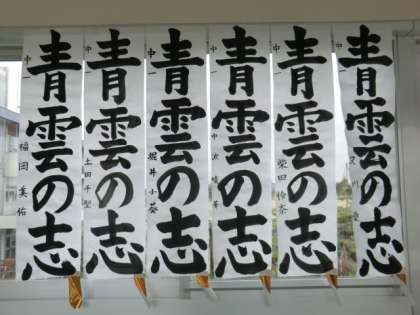 青雲の志
中一 福岡美佑
青雲の志
中一 土田千聖
青雲の志
中一 堀井小葵
青雲の志
中一
青雲の志
中一 柴田怜奈
青雲の志
中一